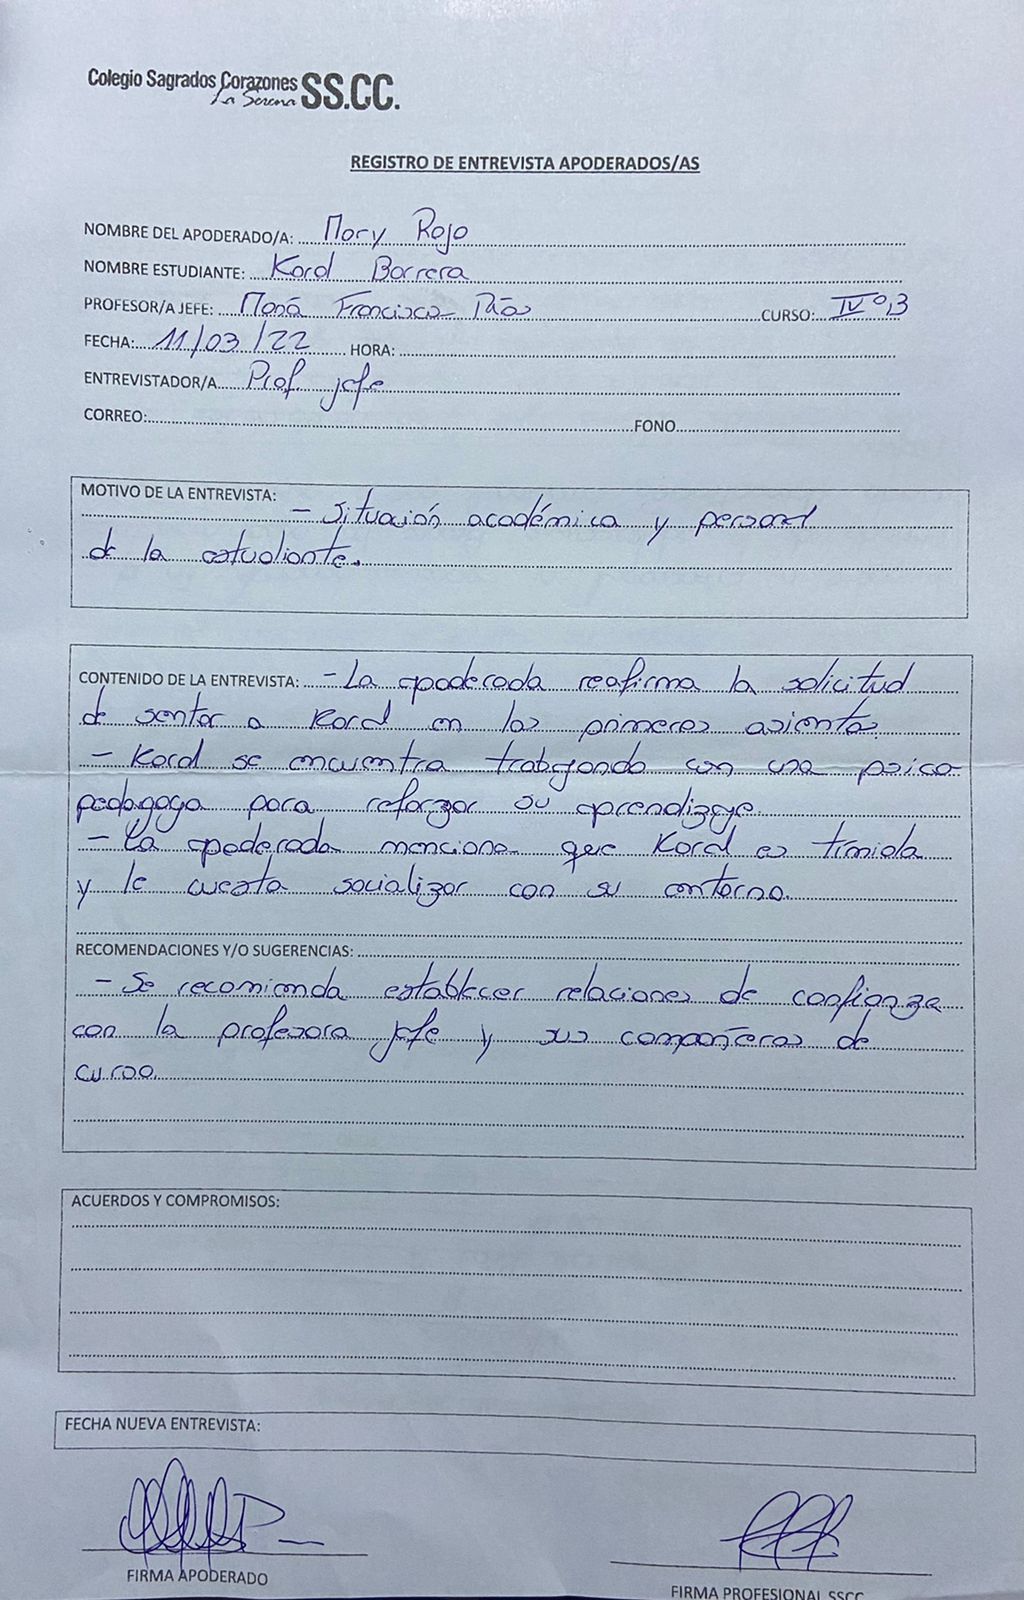 Colegio Sagrados Corazones SS.CC.
La Serena
REGISTRO DE ENTREVISTA APODERADOS/AS
NOMBRE DEL APODERADO/A: Mary Rojo
NOMBRE ESTUDIANTE: Koral Barrera
PROFESOR/A JEFE: María Francisca CURSO: IVº B
FECHA: 11/03/22 HORA:
ENTREVISTADOR/A Prof. jefe
CORREO: FONO
MOTIVO DE LA ENTREVISTA:
- Situación académica y personal
de la estudiante.
CONTENIDO DE LA ENTREVISTA: - La apoderada reafirma la solicitud
de sentar a Koral en los primeros asientos
- Koral se encuentra trabajando con una psico
pedagoga para reforzar su aprendizaje.
- La apoderada menciona que Koral es tímida
y le cuesta socializar con su entorno.
RECOMENDACIONES Y/O SUGERENCIAS:
- Se recomienda establecer relaciones de confianza
con la profesora jefe y sus compañeras de
curso.
ACUERDOS Y COMPROMISOS:
FECHA NUEVA ENTREVISTA:
FIRMA APODERADO
FIRMA PROFESIONAL SSCC